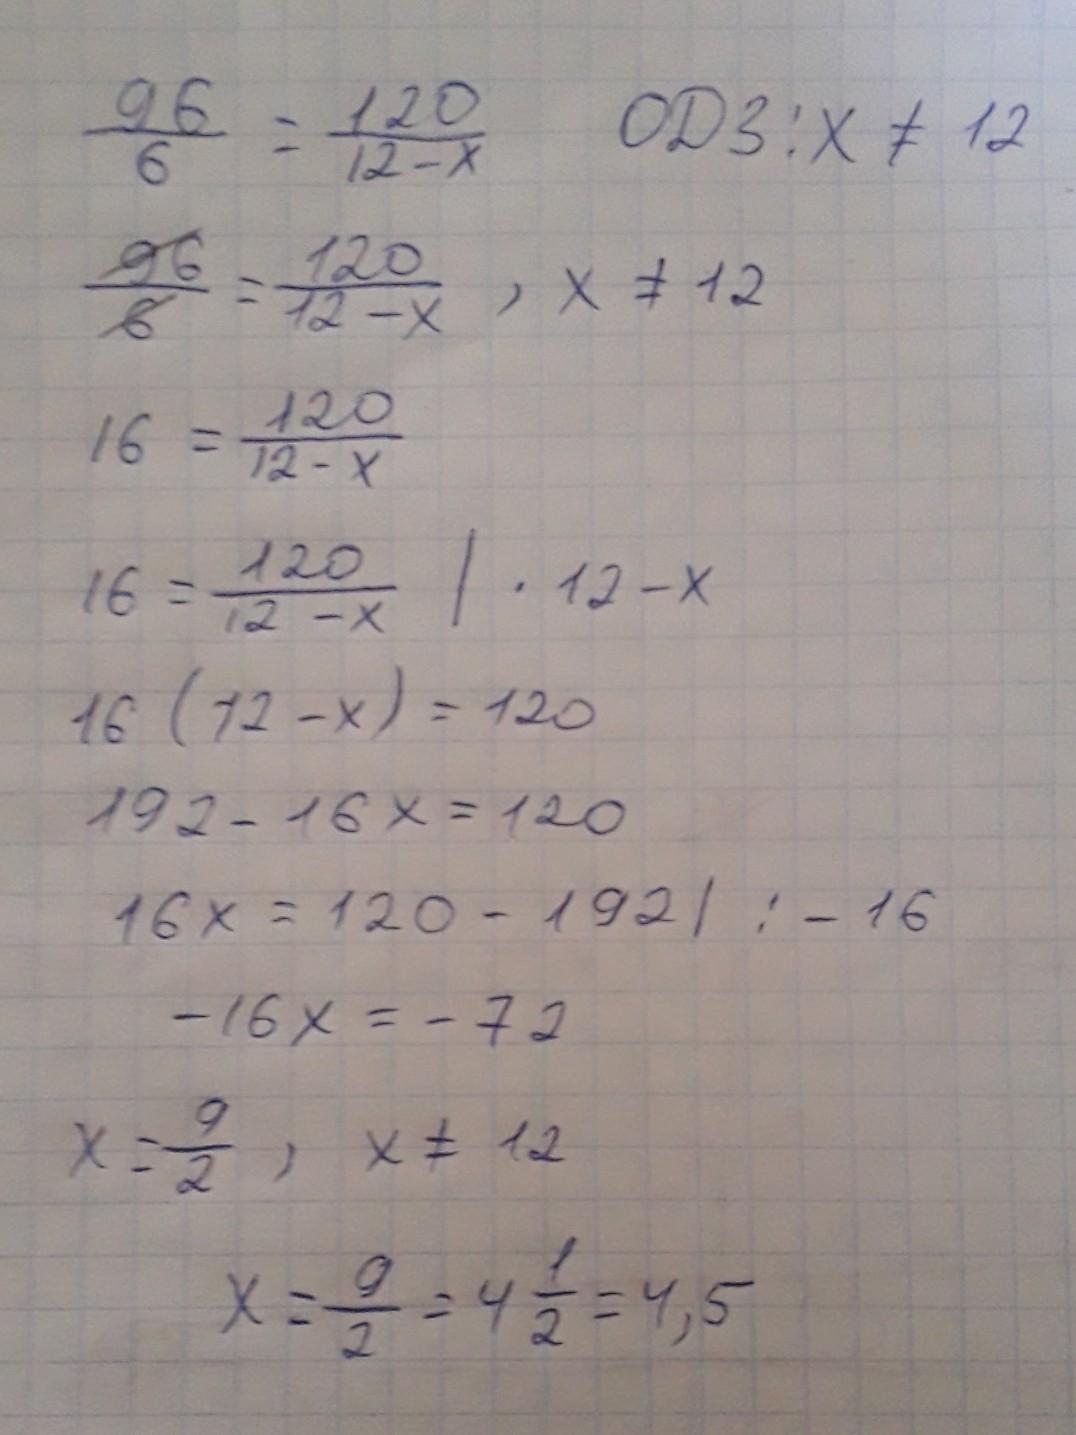 96/6 = 120/(12-x) ODЗ: x ≠ 12
96/6 = 120/(12-x), x ≠ 12
16 = 120/(12-x)
16 = 120/(12-x) | · 12-x
16(12-x) = 120
192-16x = 120
16x = 120-192 | : -16
-16x = -72
x = 9/2, x ≠ 12
x = 9/2 = 4 1/2 = 4,5